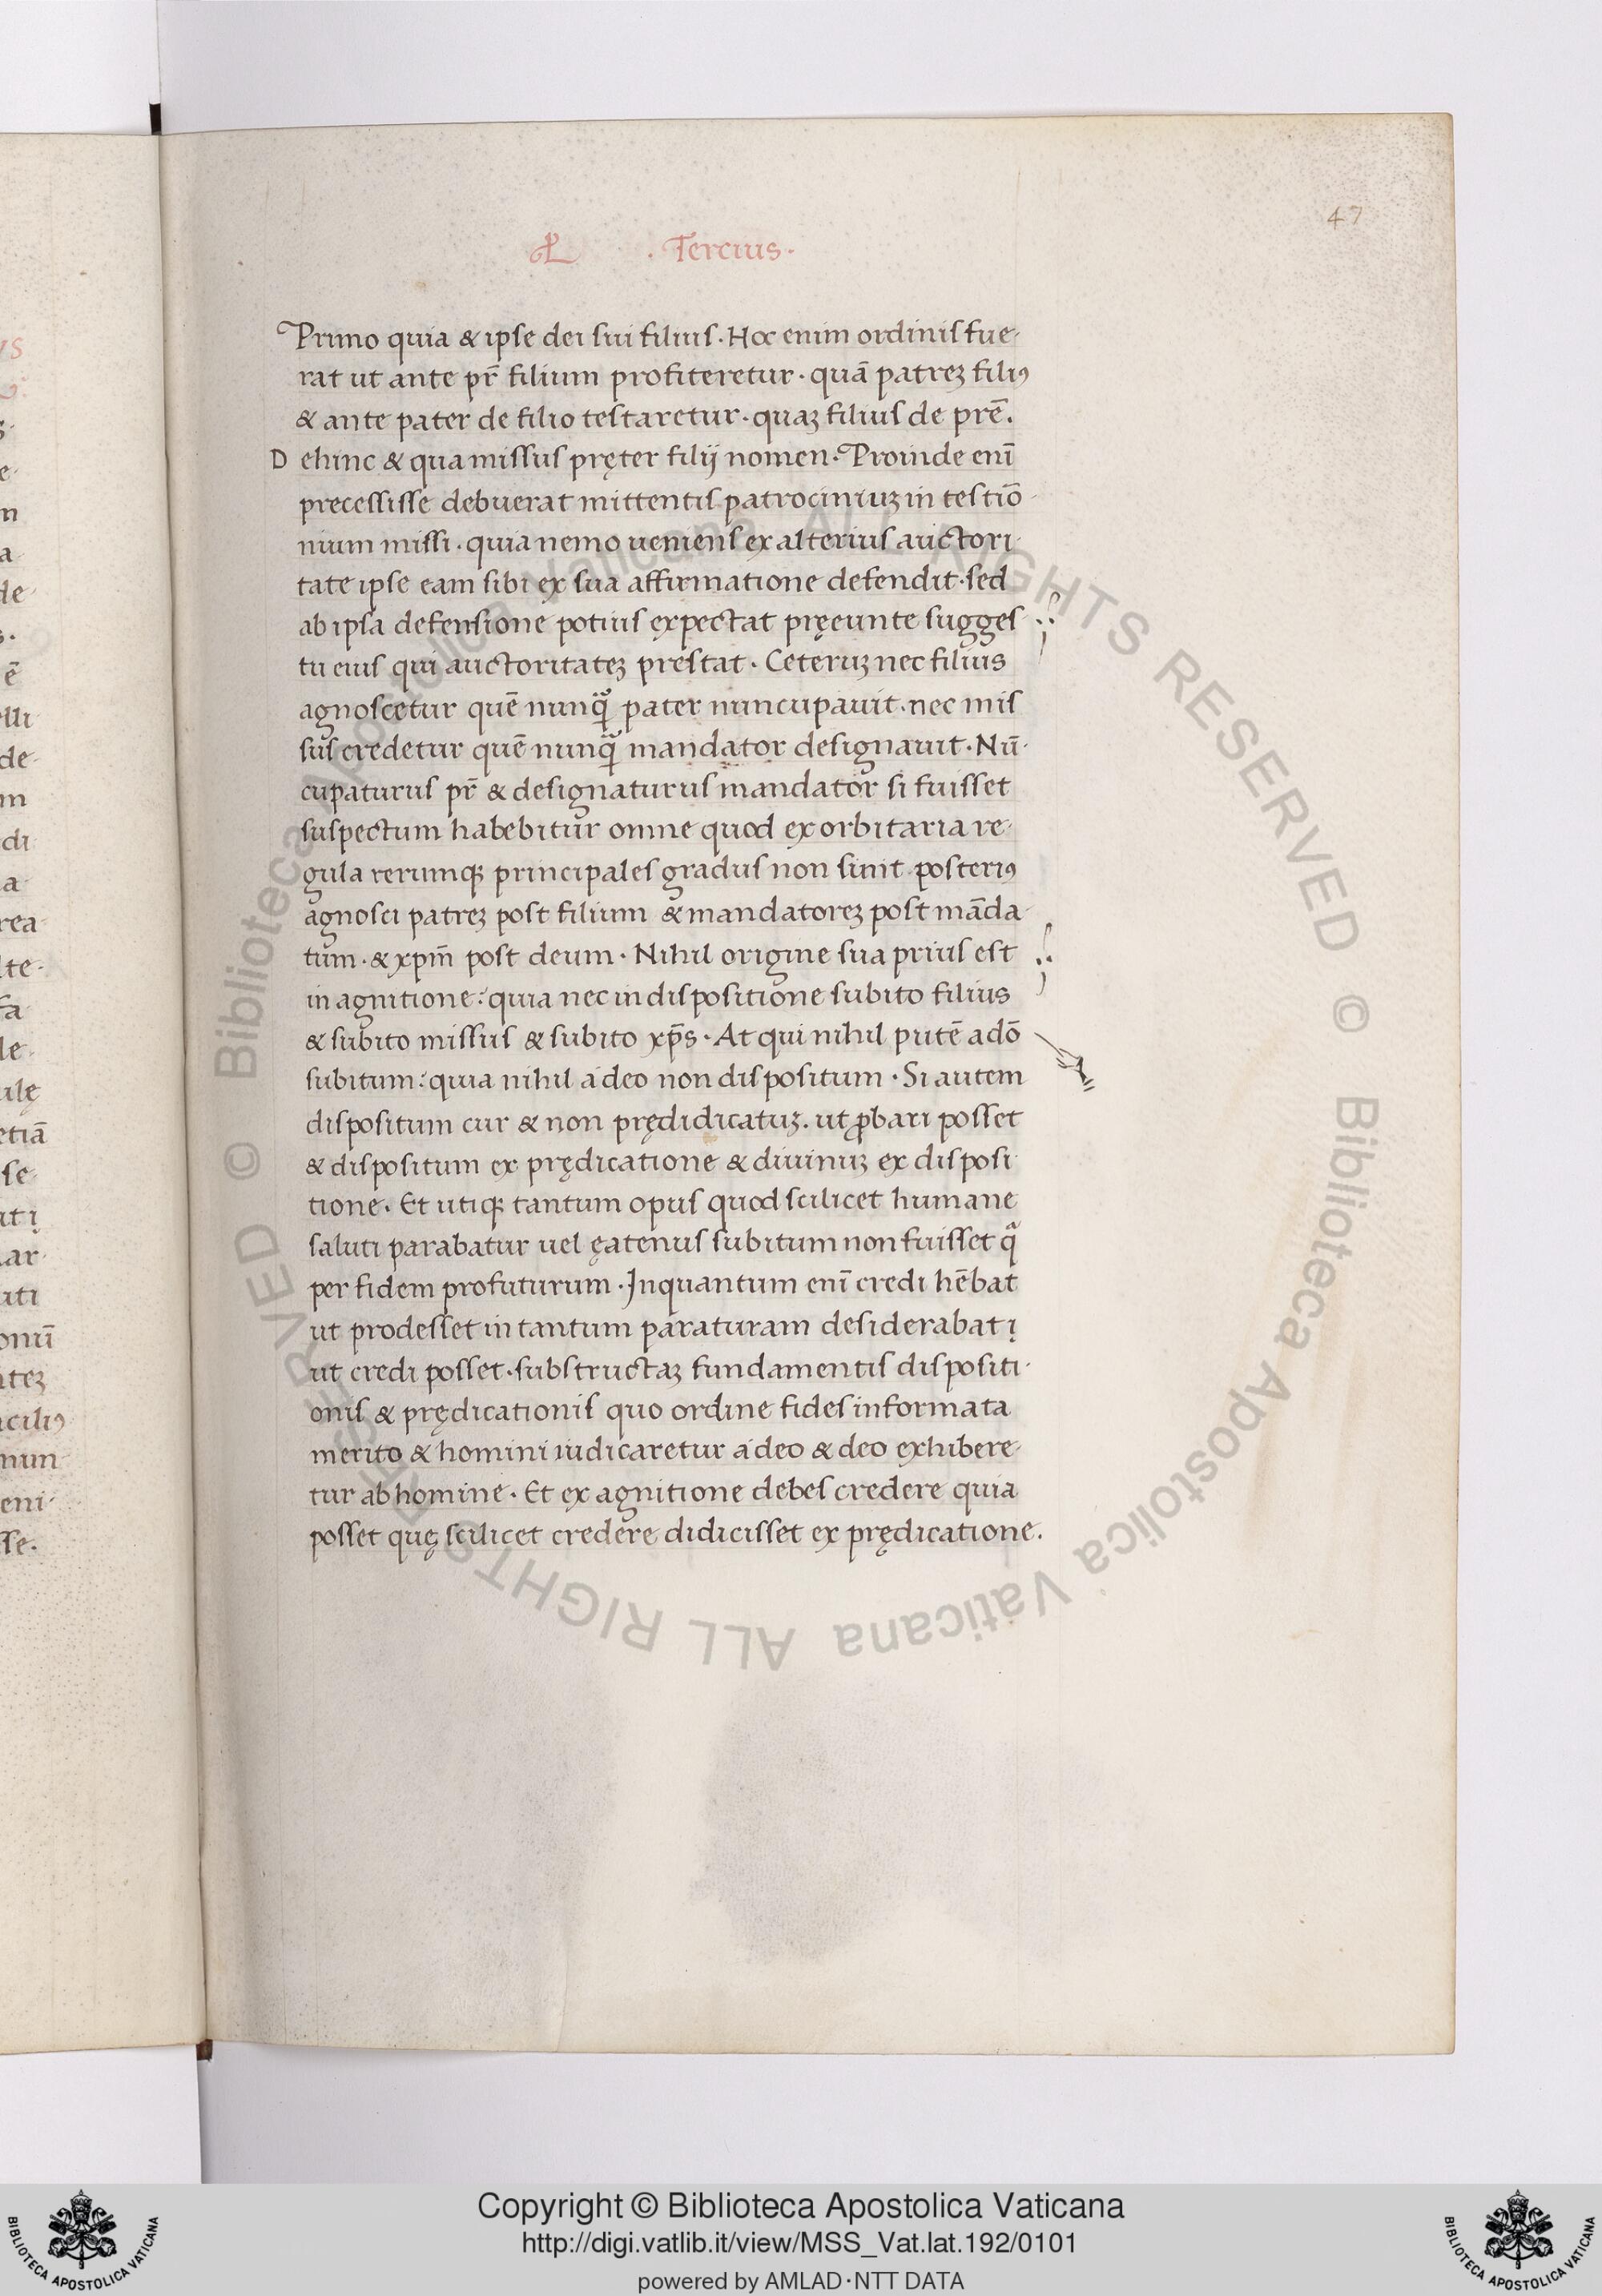 47
L · Tercius ·
Primo quia & ipse dei sui filius · Hoc enim ordinis fue-
rat ut ante pr̄ filium profiteretur · quā patreꝫ filiꝰ
& ante pater de filio testaretur · quaꝫ filius de prē .
D ehinc & qua missus pręter filij nomen · Proinde enī
precessisse debuerat mittentis patrociniuꝫ in testiō-
nium missi · quia nemo ueniens ex alterius auctori-
tate ipse eam sibi ex sua affirmatione defendit · sed
ab ipsa defensione potius expectat pręeunte sugges
tu eius qui auctoritateꝫ prestat · Ceteruꝫ nec filius
agnoscetur quē nunqᷓ pater nuncupauit · nec mis
sus credetur quē nunqᷓ mandator designauit · Nū-
cupaturus pr̄ & designaturus mandator si fuisset
suspectum habebitur omne quod exorbitaria re-
gula rerumqꝫ principales gradus non sinit posteriꝰ
agnosci patreꝫ post filium & mandatoreꝫ post māda-
tum · & xpm̄ post deum · Nihil origine sua prius est
in agnitione : quia nec in dispositione subito filius
& subito missus & subito xp̄s · At qui nihil putē adō
subitum : quia nihil adeo non dispositum · Si autem
dispositum cur & non prędidicatuꝫ . ut ꝓbari posset
& dispositum ex prędicatione & diuinuꝫ ex disposi
tione . Et utiqꝫ tantum opus quod scilicet humane
saluti parabatur uel ęatenus subitum non fuisset qᷓ
per fidem profuturum · Inquantum enī credi hēbat
ut prodesset in tantum paraturam desiderabat į
ut credi posset · substructaꝫ fundamentis dispositi-
onis & prędicationis quo ordine fides informata
merito & homini iudicaretur adeo & deo exhibere-
tur ab homine · Et ex agnitione debes credere quia
posset quę scilicet credere didicisset ex prędicatione .
Copyright © Biblioteca Apostolica Vaticana
http://digi.vatlib.it/view/MSS_Vat.lat.192/0101
powered by AMLAD·NTT DATA